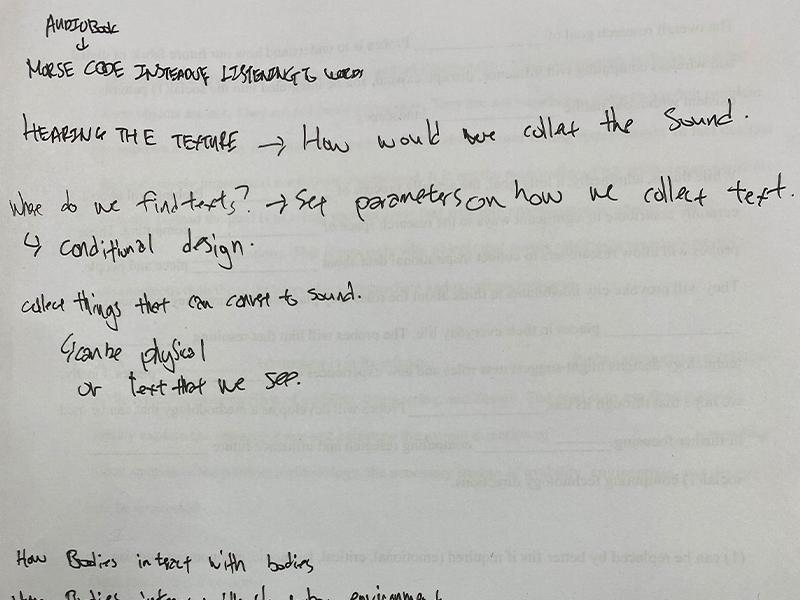 AUDIOBook
↓
MORSE CODE INSTEAD OF LISTENING TO WORDS
HEARING THE TEXTURE → How would we collect the sound.
Where do we find texts? → See parameters on how we collect text.
↳ conditional design.
collect things that can convert to sound.
↳ can be physical
or text that we see.
How Bodies interact with bodies
How Bodies environment